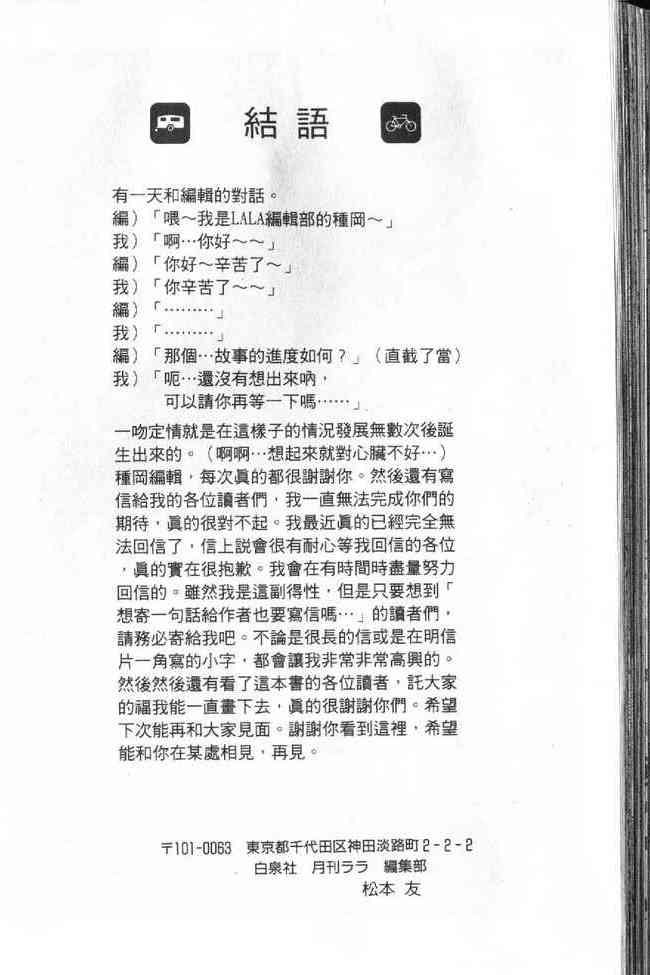 結語
有一天和編輯的對話。
編）「喂～我是LALA編輯部的種岡～」
我）「啊…你好～～」
編）「你好～辛苦了～」
我）「你辛苦了～～」
編）「………」
我）「………」
編）「那個…故事的進度如何？」（直截了當）
我）「呃…還沒有想出來吶，
可以請你再等一下嗎……」
一吻定情就是在這樣子的情況發展無數次後誕
生出來的。（啊啊…想起來就對心臟不好…）
種岡編輯，每次眞的都很謝謝你。然後還有寫
信給我的各位讀者們，我一直無法完成你們的
期待，眞的很對不起。我最近眞的已經完全無
法回信了，信上說會很有耐心等我回信的各位
，眞的實在很抱歉。我會在有時間時盡量努力
回信的。雖然我是這副得性，但是只要想到「
想寄一句話給作者也要寫信嗎…」的讀者們，
請務必寄給我吧。不論是很長的信或是在明信
片一角寫的小字，都會讓我非常非常高興的。
然後然後還有看了這本書的各位讀者，託大家
的福我能一直畫下去，眞的很謝謝你們。希望
下次能再和大家見面。謝謝你看到這裡，希望
能和你在某處相見，再見。
〒101-0063 東京都千代田区神田淡路町2-2-2
白泉社 月刊ララ 編集部
松本 友